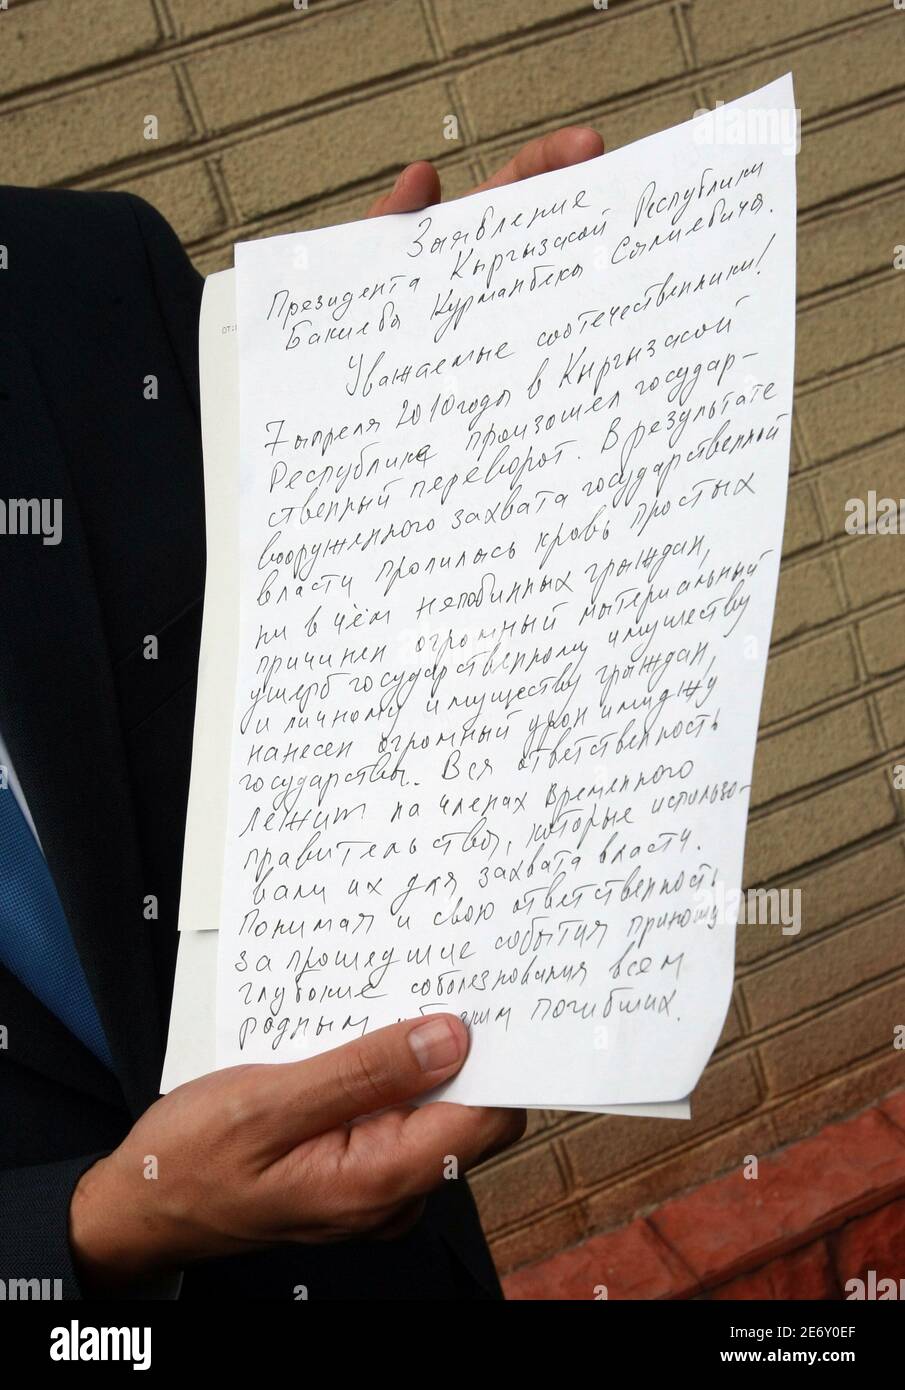 Заявление
Президента Кыргызской Республики
Бакиева Курманбека Салиевича.
Уважаемые соотечественники!
7 апреля 2010 года в Кыргызской
Республике произошел государ-
ственный переворот. В результате
вооруженного захвата государственной
власти пролилась кровь простых
ни в чём неповинных граждан,
причинен огромный материальный
ущерб государственному имуществу
и личному имуществу граждан,
нанесен огромный урон имиджу
государства. Вся ответственность
лежит на членах Временного
правительства, которые использо-
вали их для захвата власти.
Понимая и свою ответственность
за прошедшие события приношу
глубокие соболезнования всем
родным и погибших.
alamy
Image ID: 2E6Y0EF
www.alamy.com